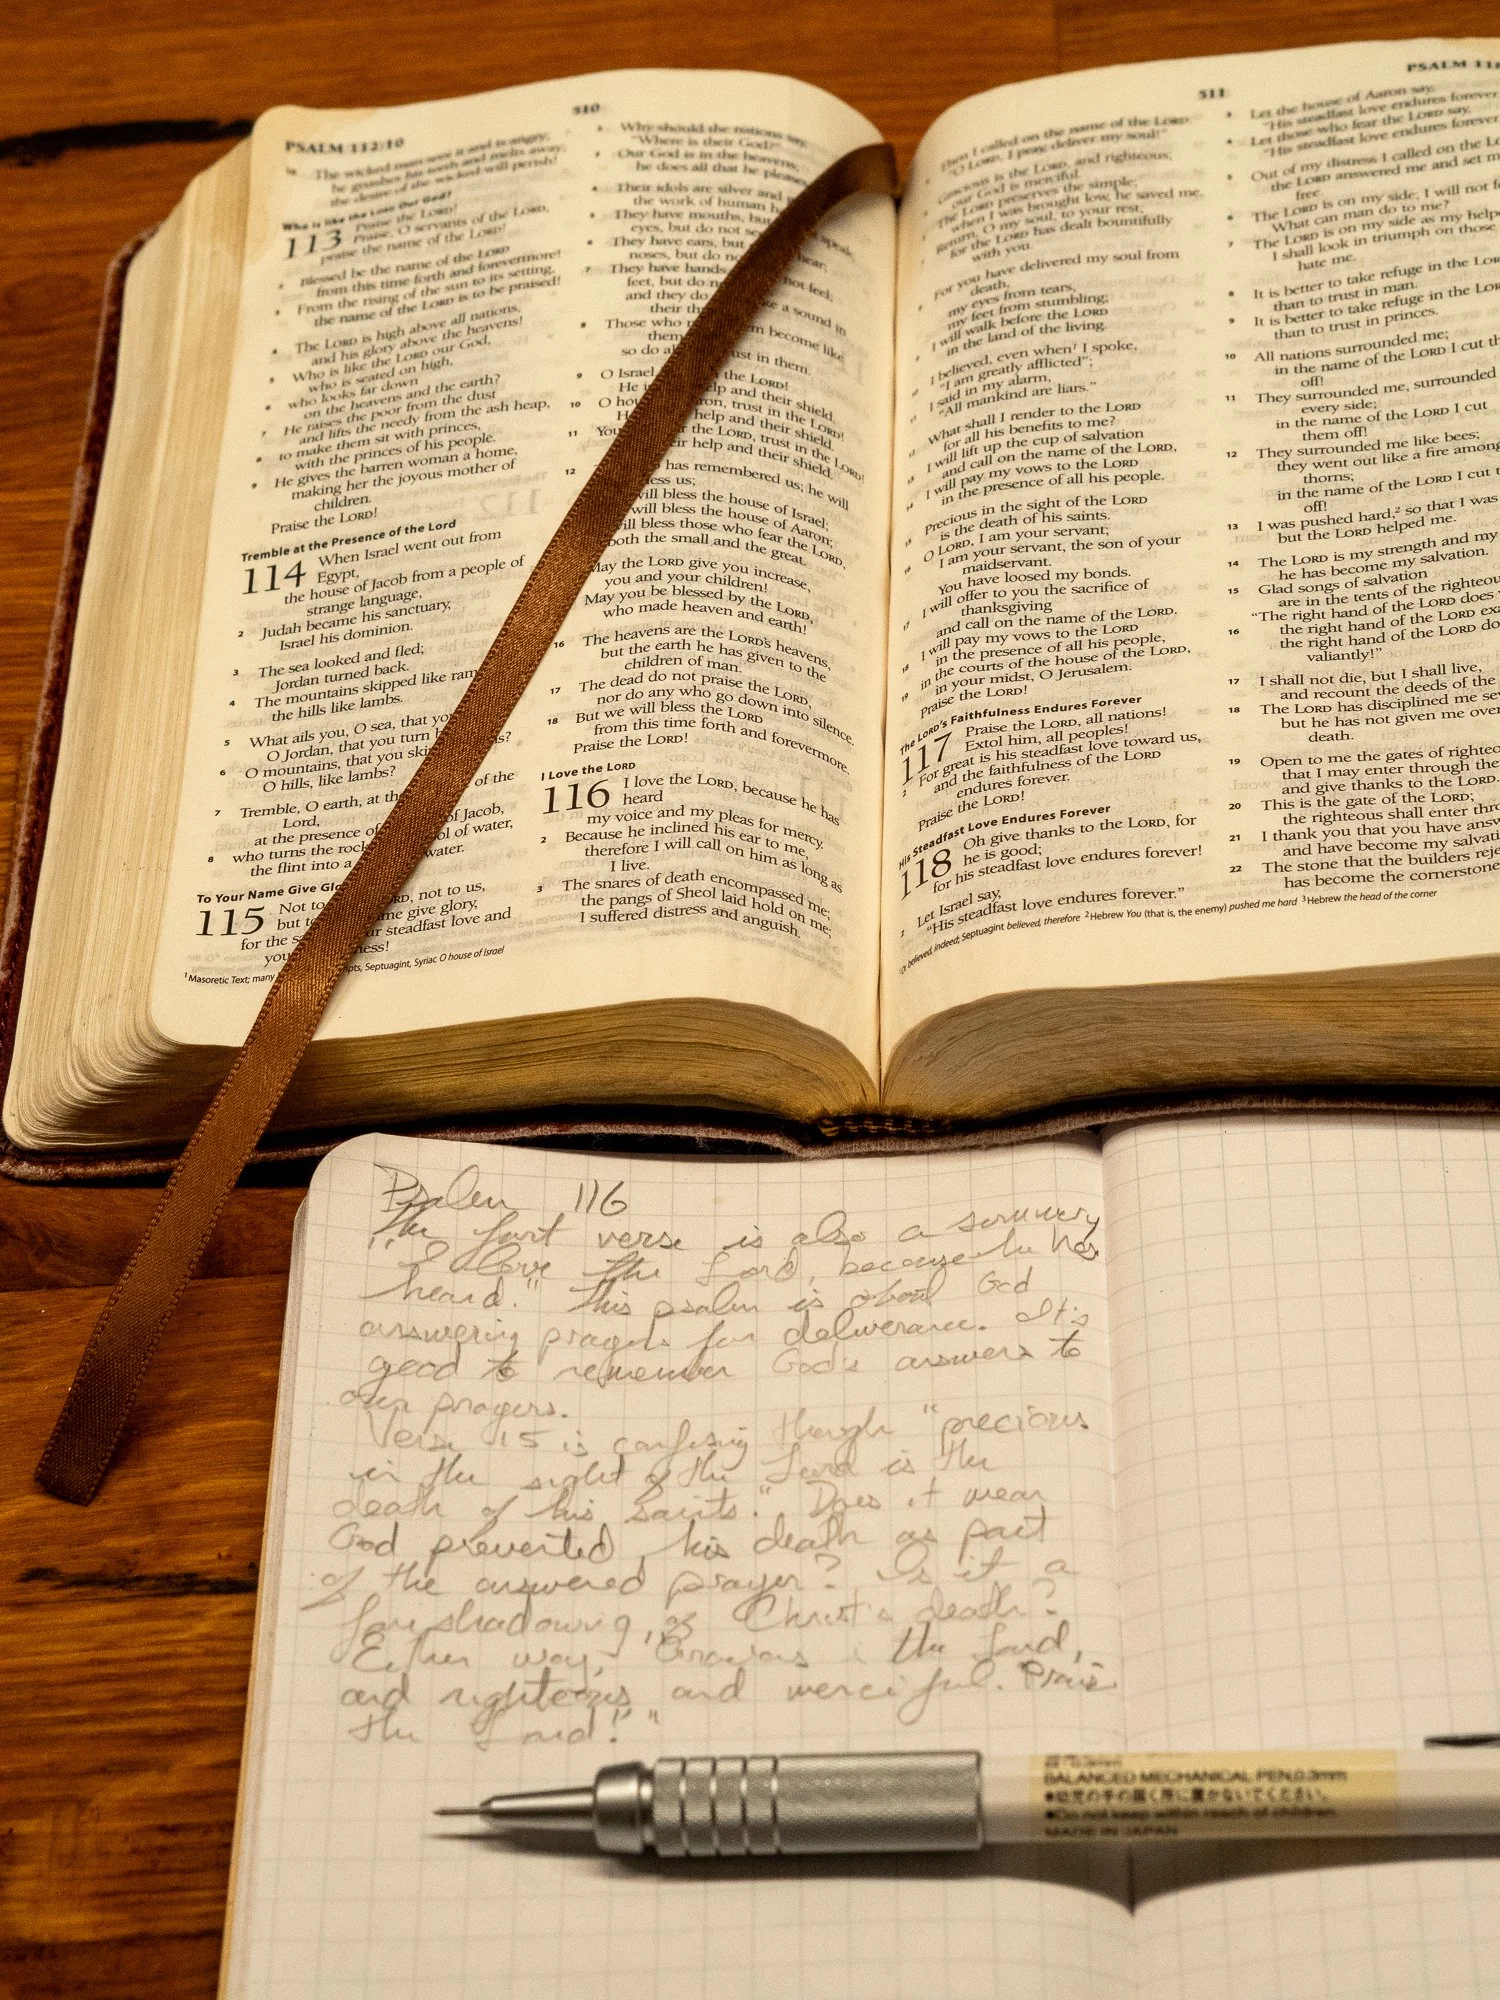 PSALM 112:10
510
10 The wicked man sees it and is angry;
he gnashes his teeth and melts away;
the desire of the wicked will perish!
Who Is like the LORD Our God?
113 Praise the LORD!
Praise, O servants of the LORD,
praise the name of the LORD!
2 Blessed be the name of the LORD
from this time forth and forevermore!
3 From the rising of the sun to its setting,
the name of the LORD is to be praised!
4 The LORD is high above all nations,
and his glory above the heavens!
5 Who is like the LORD our God,
who is seated on high,
6 who looks far down
on the heavens and the earth?
7 He raises the poor from the dust
and lifts the needy from the ash heap,
8 to make them sit with princes,
with the princes of his people.
9 He gives the barren woman a home,
making her the joyous mother of
children.
Praise the LORD!
Tremble at the Presence of the Lord
114 When Israel went out from
Egypt,
the house of Jacob from a people of
strange language,
2 Judah became his sanctuary,
Israel his dominion.
3 The sea looked and fled;
Jordan turned back.
4 The mountains skipped like ram
the hills like lambs.
5 What ails you, O sea, that yo
O Jordan, that you turn b
6 O mountains, that you skip s?
O hills, like lambs?
7 Tremble, O earth, at the of the
Lord,
at the presence of of Jacob,
8 who turns the rock ol of water,
the flint into a water.
To Your Name Give Glo
115 Not to ORD, not to us,
but to me give glory,
for the s ur steadfast love and
you ness!
1 Masoretic Text; many pts, Septuagint, Syriac O house of Israel
2 Why should the nations say,
"Where is their God?"
3 Our God is in the heavens;
he does all that he pleases
4 Their idols are silver and
the work of human h
5 They have mouths, but speak;
eyes, but do not se
6 They have ears, but hear;
noses, but do no
7 They have hands, not feel;
feet, but do n
and they do ke a sound in
their th
8 Those who m become like
them
so do al ust in them.
9 O Israel the LORD!
He i lp and their shield.
10 O hou ron, trust in the LORD!
H help and their shield.
11 You the LORD, trust in the LORD!
eir help and their shield.
12 has remembered us; he will
less us;
will bless the house of Israel;
will bless the house of Aaron;
ill bless those who fear the LORD,
both the small and the great.
May the LORD give you increase,
you and your children!
May you be blessed by the LORD,
who made heaven and earth!
16 The heavens are the LORD's heavens,
but the earth he has given to the
children of man.
17 The dead do not praise the LORD,
nor do any who go down into silence.
18 But we will bless the LORD
from this time forth and forevermore.
Praise the LORD!
I Love the LORD
116 I love the LORD, because he has
heard
my voice and my pleas for mercy.
2 Because he inclined his ear to me,
therefore I will call on him as long as
I live.
3 The snares of death encompassed me;
the pangs of Sheol laid hold on me;
I suffered distress and anguish.
511
PSALM 11
Then I called on the name of the LORD:
"O LORD, I pray, deliver my soul!"
Gracious is the LORD, and righteous;
our God is merciful.
The LORD preserves the simple;
when I was brought low, he saved me.
Return, O my soul, to your rest;
for the LORD has dealt bountifully
with you.
For you have delivered my soul from
death,
my eyes from tears,
my feet from stumbling;
I will walk before the LORD
in the land of the living.
I believed, even when¹ I spoke,
"I am greatly afflicted";
I said in my alarm,
"All mankind are liars."
What shall I render to the LORD
for all his benefits to me?
I will lift up the cup of salvation
and call on the name of the LORD,
I will pay my vows to the LORD
in the presence of all his people.
Precious in the sight of the LORD
is the death of his saints.
O LORD, I am your servant;
I am your servant, the son of your
maidservant.
You have loosed my bonds.
I will offer to you the sacrifice of
thanksgiving
and call on the name of the LORD.
I will pay my vows to the LORD
in the presence of all his people,
in the courts of the house of the LORD,
in your midst, O Jerusalem.
Praise the LORD!
The LORD's Faithfulness Endures Forever
117 Praise the LORD, all nations!
Extol him, all peoples!
2 For great is his steadfast love toward us,
and the faithfulness of the LORD
endures forever.
Praise the LORD!
His Steadfast Love Endures Forever
118 Oh give thanks to the LORD, for
he is good;
for his steadfast love endures forever!
2 Let Israel say,
"His steadfast love endures forever."
1 Or believed, indeed; Septuagint believed, therefore 2 Hebrew You (that is, the enemy) pushed me hard 3 Hebrew the head of the corner
3 Let the house of Aaron say,
"His steadfast love endures forever
4 Let those who fear the LORD say,
"His steadfast love endures forever
5 Out of my distress I called on the Lo
the LORD answered me and set m
free.
6 The LORD is on my side; I will not fe
What can man do to me?
7 The LORD is on my side as my helpe
I shall look in triumph on those
hate me.
8 It is better to take refuge in the LOR
than to trust in man.
9 It is better to take refuge in the LOR
than to trust in princes.
10 All nations surrounded me;
in the name of the LORD I cut th
off!
11 They surrounded me, surrounded
every side;
in the name of the LORD I cut
them off!
12 They surrounded me like bees;
they went out like a fire among
thorns;
in the name of the LORD I cut t
off!
13 I was pushed hard,² so that I was
but the LORD helped me.
14 The LORD is my strength and my
he has become my salvation.
15 Glad songs of salvation
are in the tents of the righteou
"The right hand of the LORD does
16 the right hand of the LORD exa
the right hand of the LORD do
valiantly!"
17 I shall not die, but I shall live,
and recount the deeds of the
18 The LORD has disciplined me se
but he has not given me over
death.
19 Open to me the gates of righteo
that I may enter through the
and give thanks to the LORD.
20 This is the gate of the LORD;
the righteous shall enter thro
21 I thank you that you have answ
and have become my salvati
22 The stone that the builders reje
has become the cornerstone
Psalm 116
The first verse is also a summery
"I love the Lord, because he has
heard." This psalm is about God
answering prayers for deliverance. It's
good to remember God's answers to
our prayers.
Verse 15 is confusing though "precious
in the sight of the Lord is the
death of his saints." Does it mean
God prevented his death as part
of the answered prayer? Is it a
foreshadowing of Christ's death?
Either way, "Gracious is the Lord,
and righteous and merciful. Praise
the Lord!"
BALANCED MECHANICAL PEN.0.3mm
●幼児の手の届く所に置かないでください。
●Do not keep within reach of children.
MADE IN JAPAN